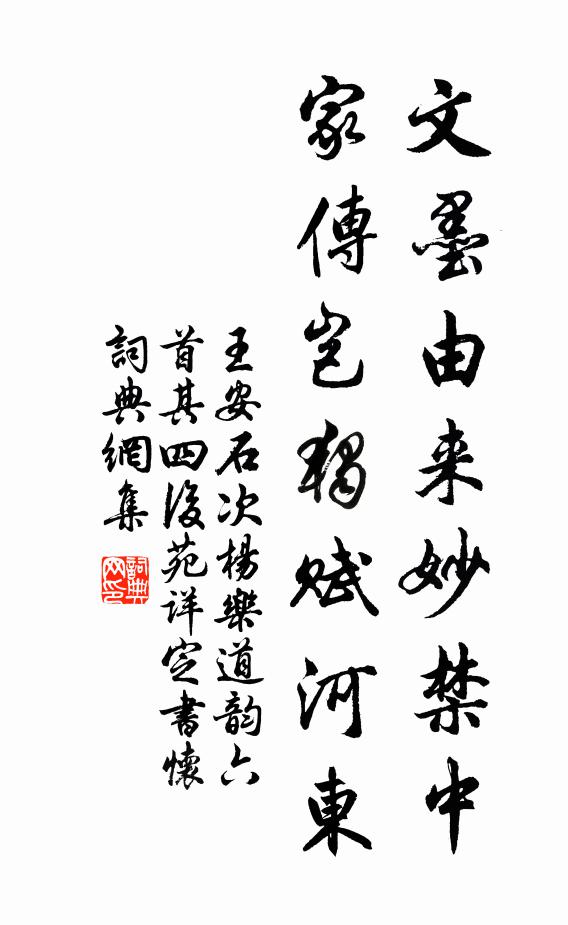 文墨由来妙禁中
家傳岂獨赋河東
王安石次楊樂道韵六
首其四後苑详定書懷
詞典網集
詞典
网印